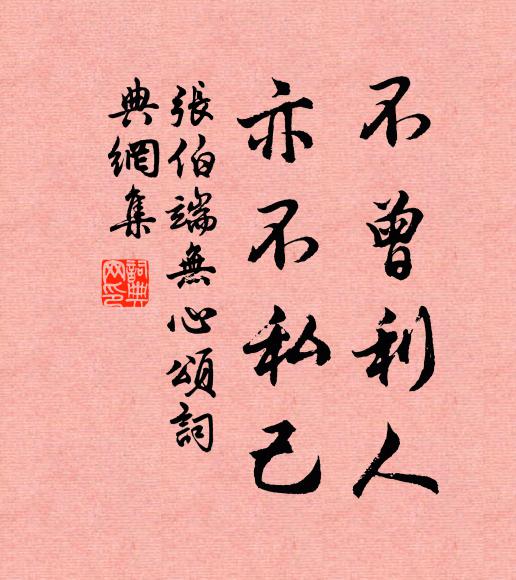 不曾利人
亦不私己
張伯端無心頌詞
典網集
詞典網印